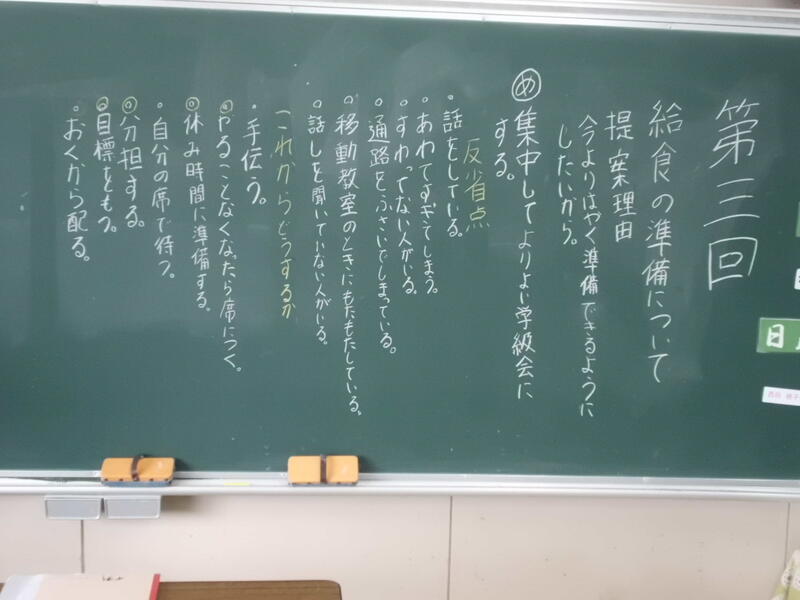 第三回
給食の準備について
提案理由
今よりはやく準備できるように
したいから。
め 集中してよりよい学級会に
する。
反省点
・話をしている。
・あわてすぎてしまう。
・すわってない人がいる。
・通路をふさいでしまっている。
・移動教室のときにもたもたしている。
・話しを聞いていない人がいる。
これからどうするか
・手伝う。
◎やることなくなったら席につく。
◎休み時間に準備する。
・自分の席で待つ。
◎分担する。
◎目標をもつ。
・おくから配る。
日